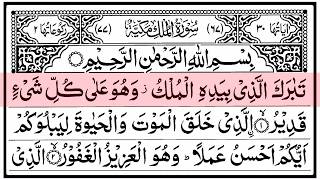 اٰیَاتُهَا ٣٠ (٦٧) سُوْرَةُ الْمُلْكِ مَكِّيَّةٌ (٧٧) رُكُوْعَاتُهَا ٢
بِسْمِ اللهِ الرَّحْمٰنِ الرَّحِيْمِ
تَبٰرَكَ الَّذِىْ بِيَدِهِ الْمُلْكُ ز وَهُوَ عَلٰى كُلِّ شَىْءٍ
قَدِيْرُ ۙ﴿١﴾ الَّذِىْ خَلَقَ الْمَوْتَ وَالْحَيٰوةَ لِيَبْلُوَكُمْ
اَيُّكُمْ اَحْسَنُ عَمَلًا ؕ وَهُوَ الْعَزِيْزُ الْغَفُوْرُ ۙ﴿٢﴾ الَّذِىْ